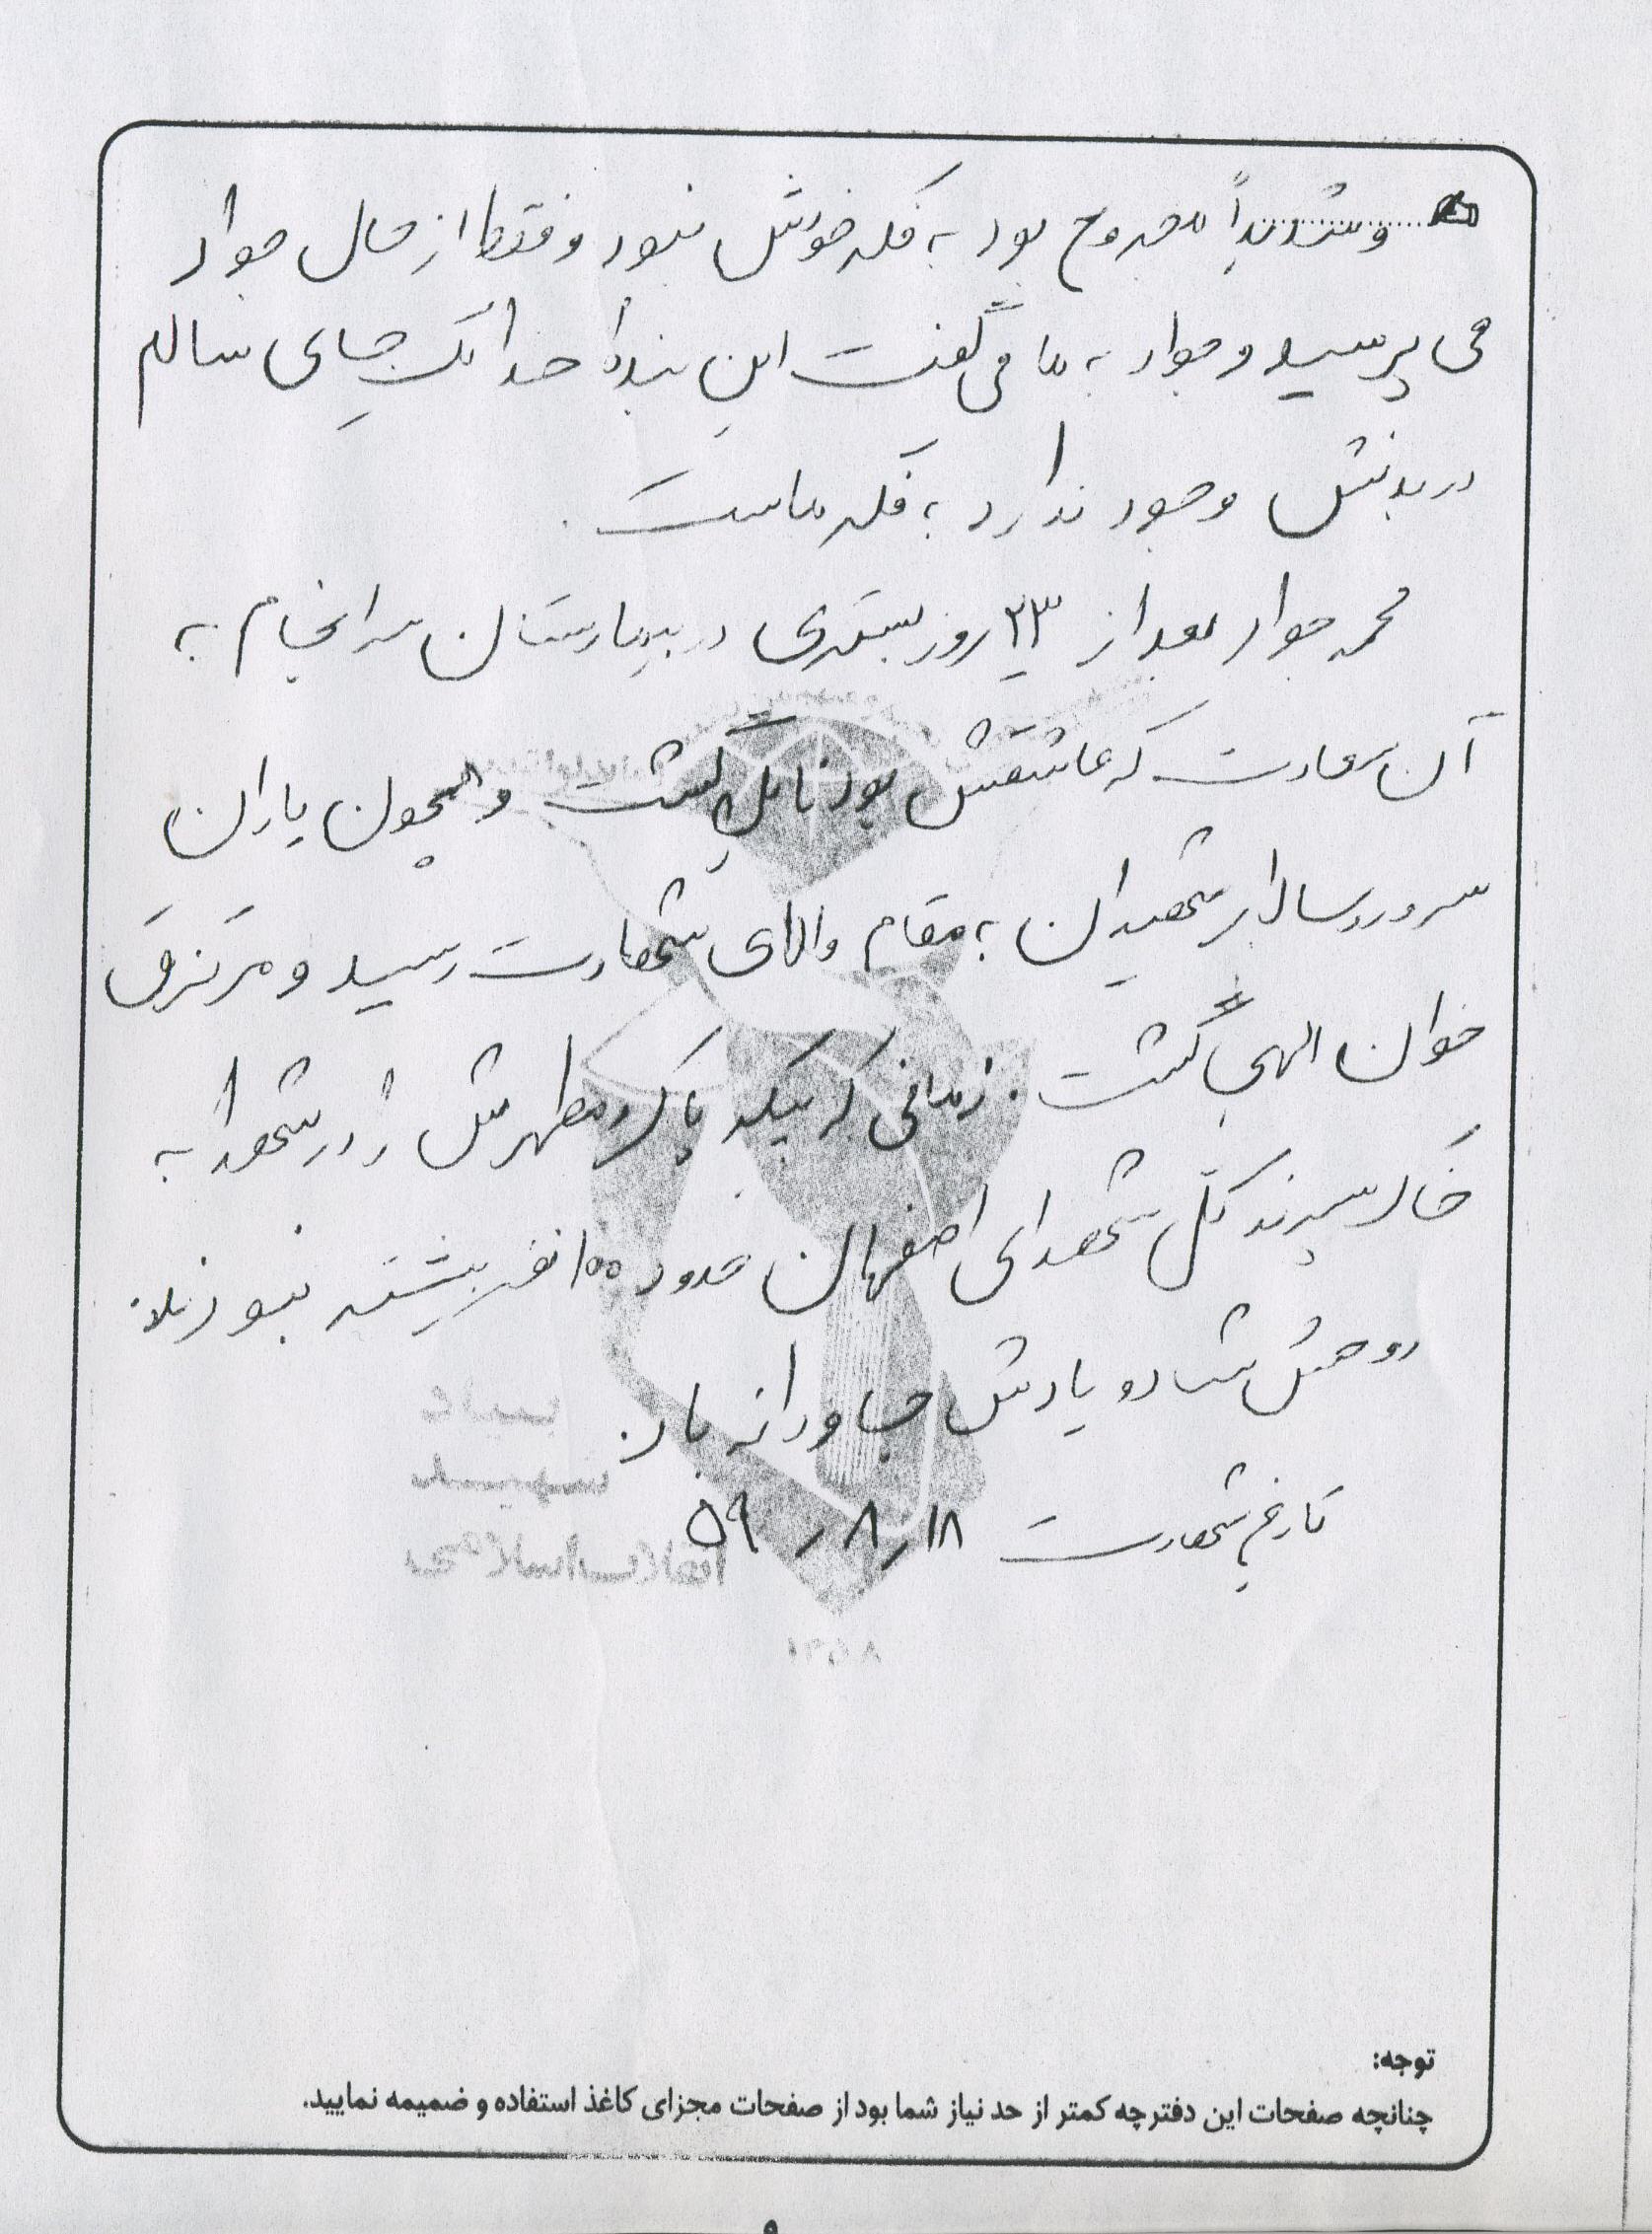 و شدیداً مجروح بود به فکر خودش نبود و فقط از حال جواد
می پرسید و جواد به ما می گفت این بنده خدا یک جای سالم
در بدنش وجود ندارد به فکر ماست .
محمد جواد بعد از ۲۳ روز بستری در بیمارستان سرانجام به
آن سعادت که عاشقش بود نایل گشت و همچون یاران
سرور و سالار شهیدان به مقام والای شهادت رسید و مرتزق
خوان الهی گشت . زمانی که پیکر پاک و مطهرش را در شهدا به
خاک سپردند کل شهدای اصفهان حدود ۱۰۰ نفر بیشتر نبودند.
روحش شاد و یادش جاودانه باد.
تاریخ شهادت ۱۸ / ۸ / ۵۹
توجه:
چنانچه صفحات این دفترچه کمتر از حد نیاز شما بود از صفحات مجزای کاغذ استفاده و ضمیمه نمایید.